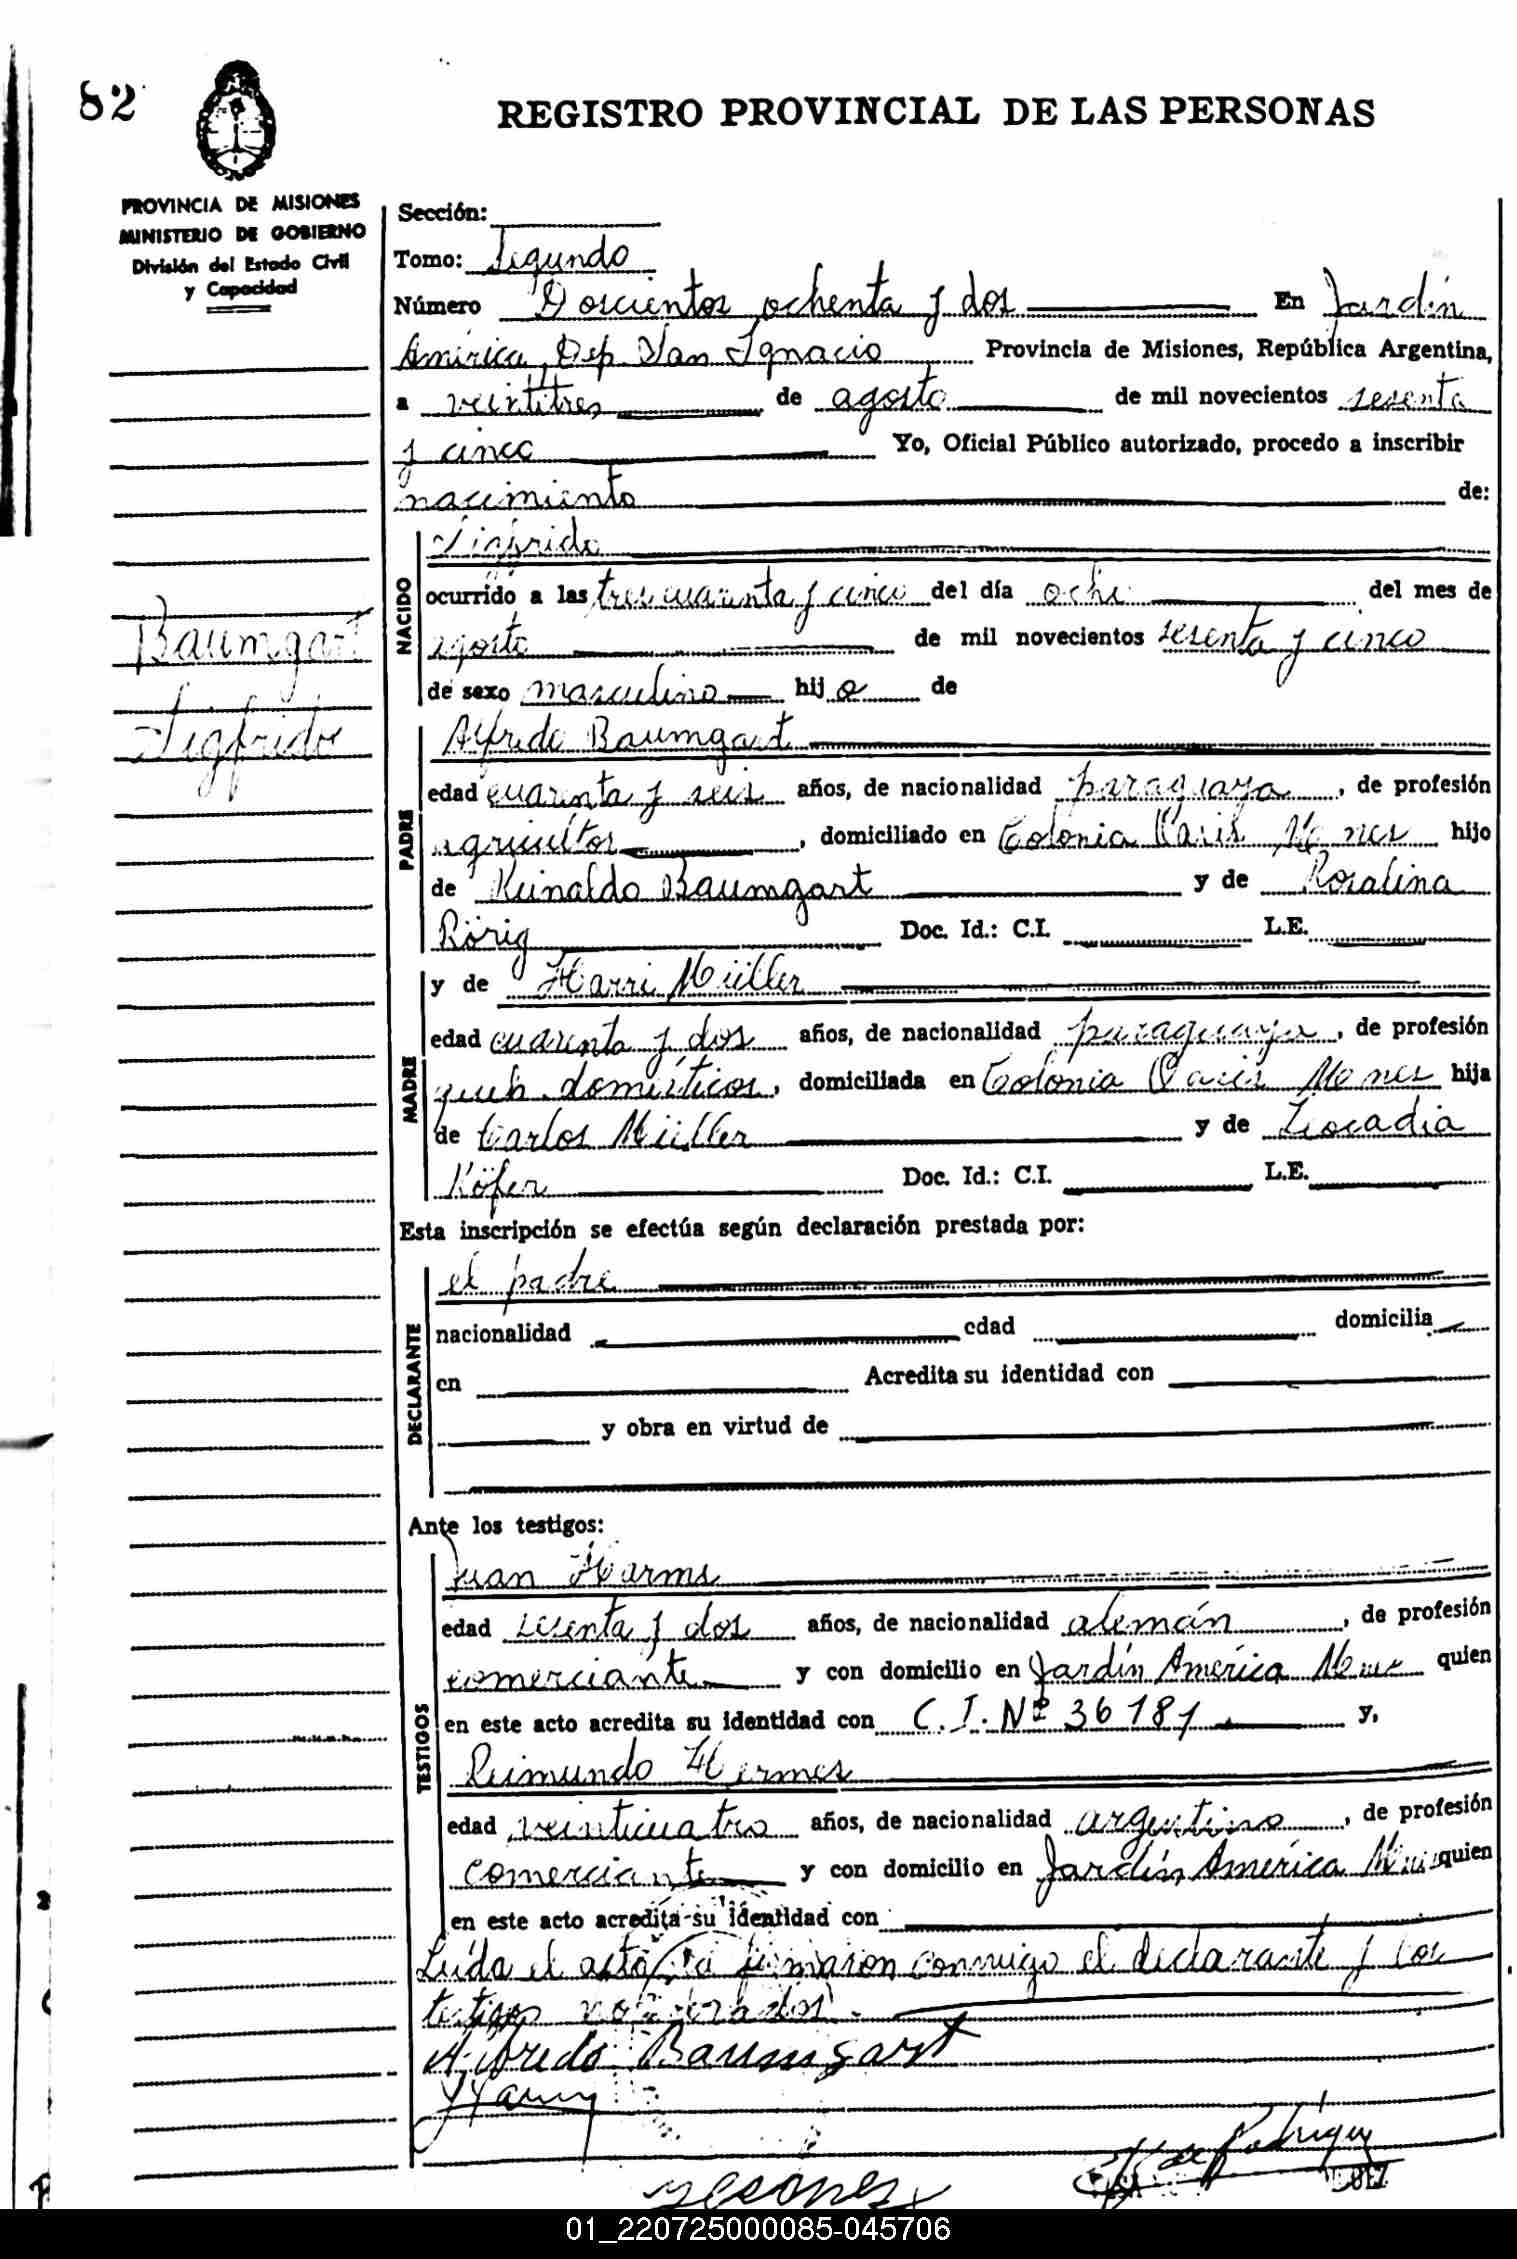 82
REGISTRO PROVINCIAL DE LAS PERSONAS
PROVINCIA DE MISIONES
MINISTERIO DE GOBIERNO
División del Estado Civil
y Capacidad
Sección:
Tomo: Segundo
Número Doscientos ochenta y dos En Jardín
América, Dep. San Ignacio Provincia de Misiones, República Argentina,
a veintitres de agosto de mil novecientos sesenta
y cinco Yo, Oficial Público autorizado, procedo a inscribir
nacimiento de:
NACIDO
Sigfrido
ocurrido a las tres cuarenta y cinco del día ocho del mes de
agosto de mil novecientos sesenta y cinco
de sexo masculino hijo de
Baumgart
Sigfrido
PADRE
Alfredo Baumgart
edad cuarenta y seis años, de nacionalidad paraguaya, de profesión
agricultor, domiciliado en Colonia Oasis Mnes hijo
de Reinaldo Baumgart y de Rosalina
Rörig Doc. Id.: C.I. L.E.
MADRE
y de Harri Müller
edad cuarenta y dos años, de nacionalidad paraguaya, de profesión
queh. domésticos, domiciliada en Colonia Oasis Mnes hija
de Carlos Müller y de Leocadia
Köfer Doc. Id.: C.I. L.E.
Esta inscripción se efectúa según declaración prestada por:
DECLARANTE
el padre
nacionalidad edad domicilia
en Acredita su identidad con
y obra en virtud de
Ante los testigos:
TESTIGOS
Juan Harms
edad sesenta y dos años, de nacionalidad alemán, de profesión
comerciante y con domicilio en Jardín América Mnes quien
en este acto acredita su identidad con C.I. Nº 36181 y,
Reimundo Hermes
edad veinticuatro años, de nacionalidad argentino, de profesión
comerciante y con domicilio en Jardín América Mnes quien
en este acto acredita su identidad con
Leída el acta, la firmaron conmigo el declarante y los
testigos nombrados.
Alfredo Baumgart
Rodriguez
01_220725000085-045706